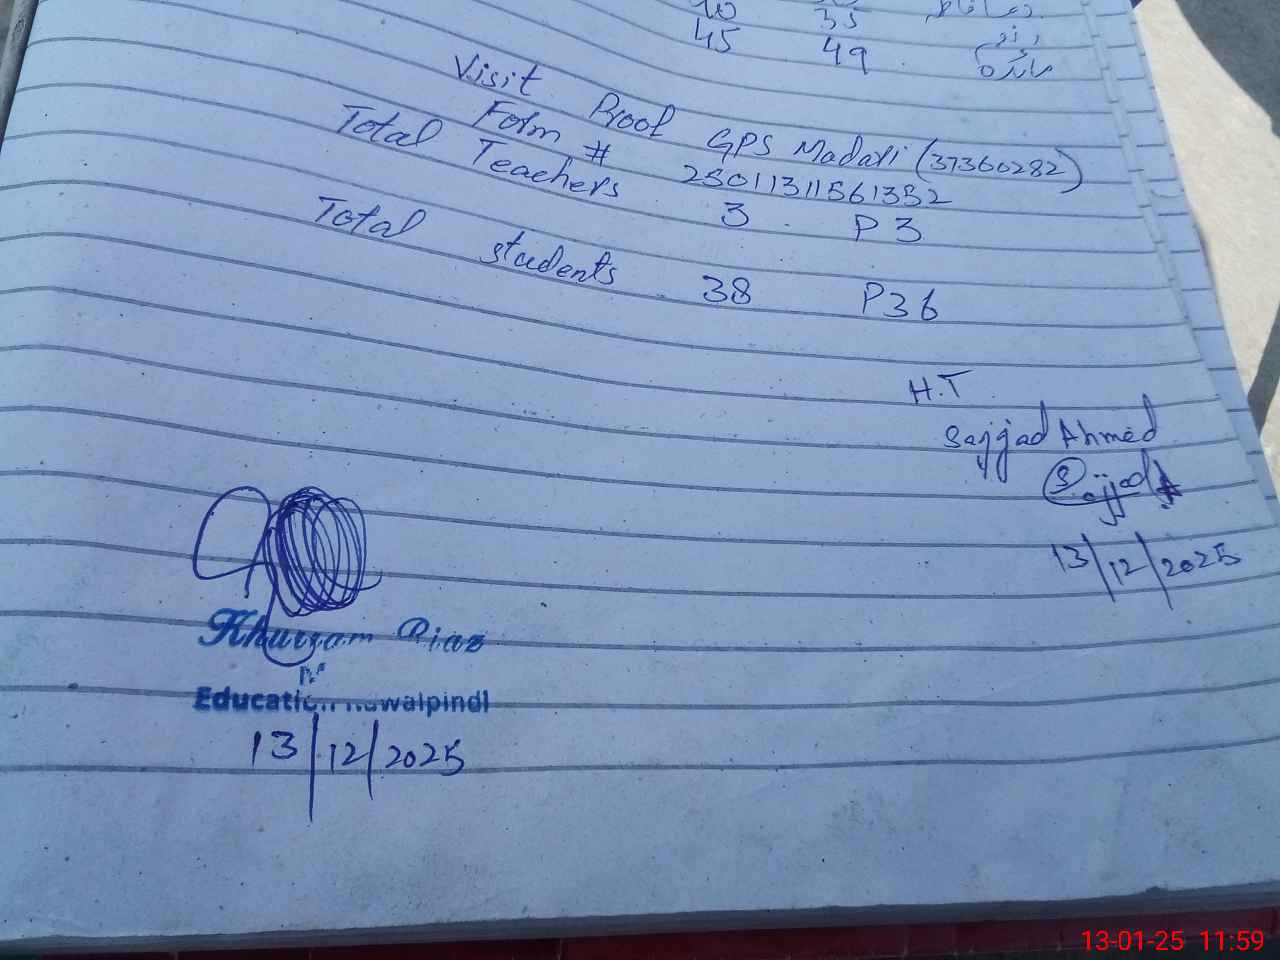 40 35
45 49 مائدہ
Visit Proof GPS Madari (37360282)
Form # 25011311561352
Total Teachers 3 P 3
Total students 38 P36
H.T
Sajjad Ahmed
Sajjad A
13/12/2025
Khurram Riaz
Education Rawalpindi
13/12/2025
13-01-25 11:59